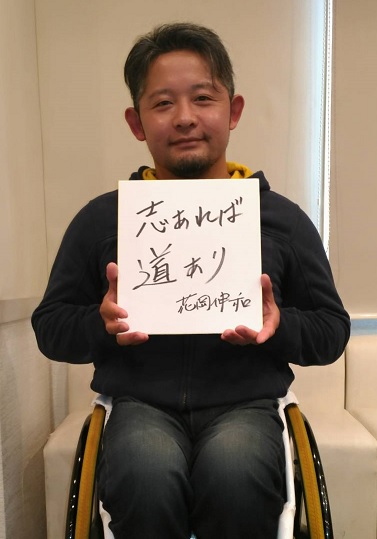 志あれば
道あり
花岡伸和